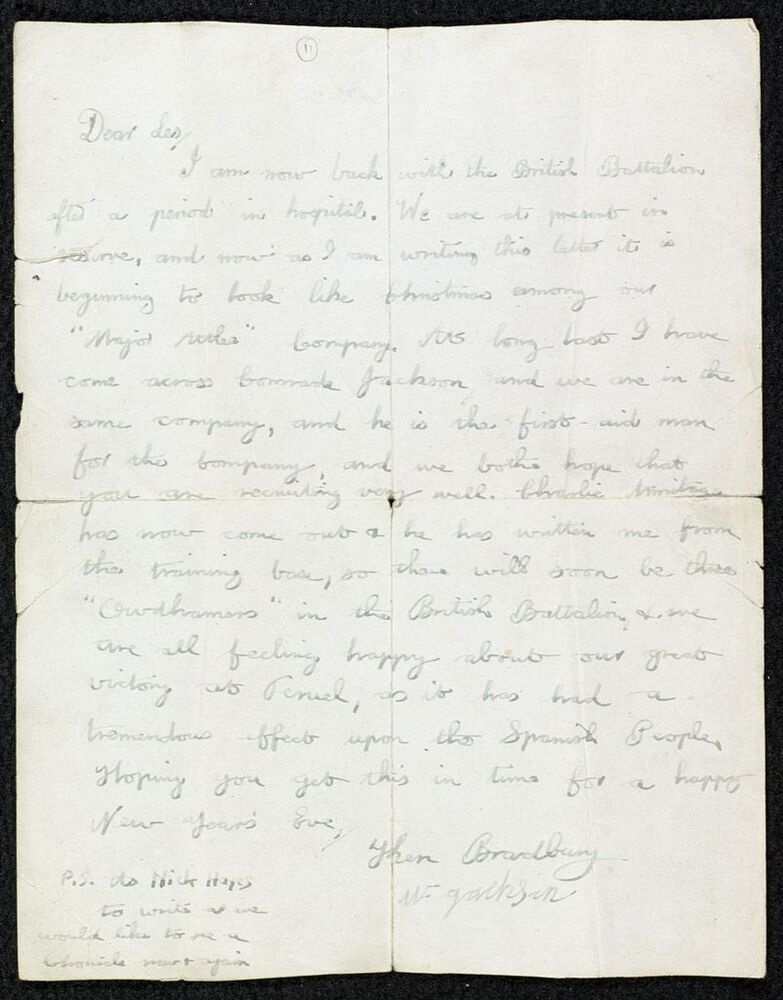 11
Dear Les,
I am now back with the British Battalion
after a period in hospital. We are at present in
reserve, and now as I am writing this letter it is
beginning to look like Christmas among our
"Major Attlee" Company. At long last I have
come across Comrade Jackson and we are in the
same company, and he is the first-aid man
for the Company, and we both hope that
you are recruiting very well. Charlie
has now come out & he has written me from
the training base, so there will soon be three
"Owdhamers" in the British Battalion, & we
are all feeling happy about our great
victory at Teruel, as it has had a
tremendous effect upon the Spanish People,
Hoping you get this in time for a happy
New Years Eve,
Ken Bradbury
W Jackson
P.S. Nick
to write as we
would like to see a
Chronicle now & again